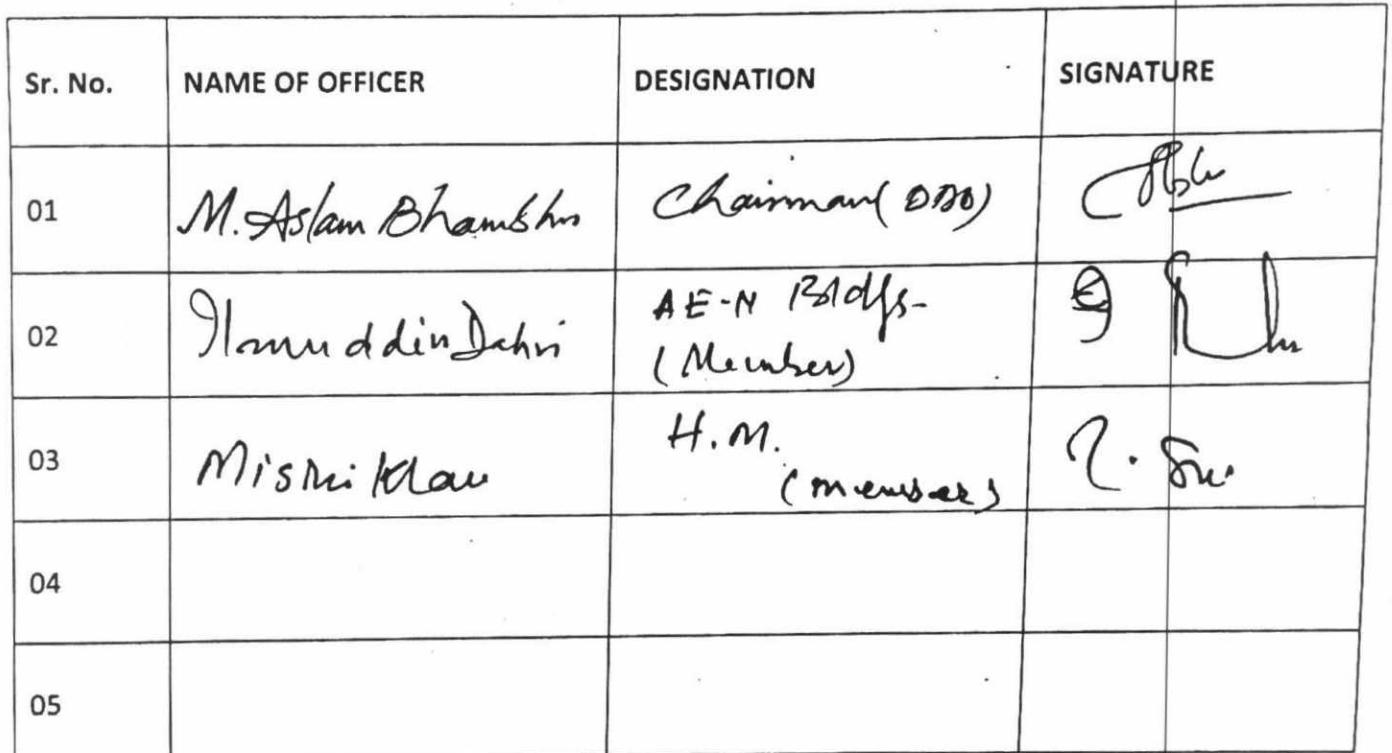 Sr. No. NAME OF OFFICER DESIGNATION SIGNATURE
01 M. Aslam Bhambhro Chairman (DDO)
02 Ilmuddin Dahri AE-N Bldgs-
(Member)
03 Misri Khan H.M.
(member)
04
05